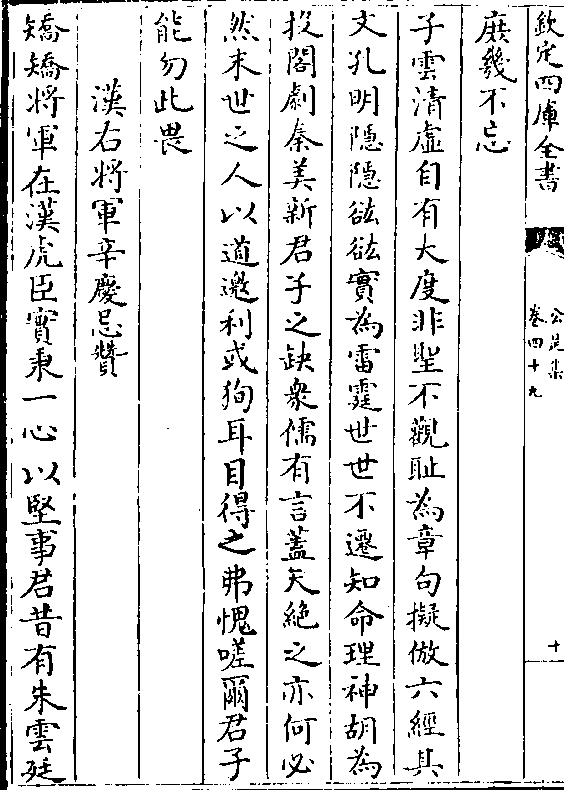 欽定四庫全書
公是集
卷四十九
十
庶幾不忘
子雲清虛自有大度非聖不觀恥為章句擬倣六經其
文孔明隠隠谹谹實為雷霆世世不遷知命理神胡為
投閣劇秦美新君子之缺衆儒有言蓋天絶之亦何必
然末世之人以道邀利或狥耳目得之弗愧嗟爾君子
能勿此畏
漢右將軍辛慶忌贊
矯矯將軍在漢虎臣實秉一心以堅事君昔有朱雲廷